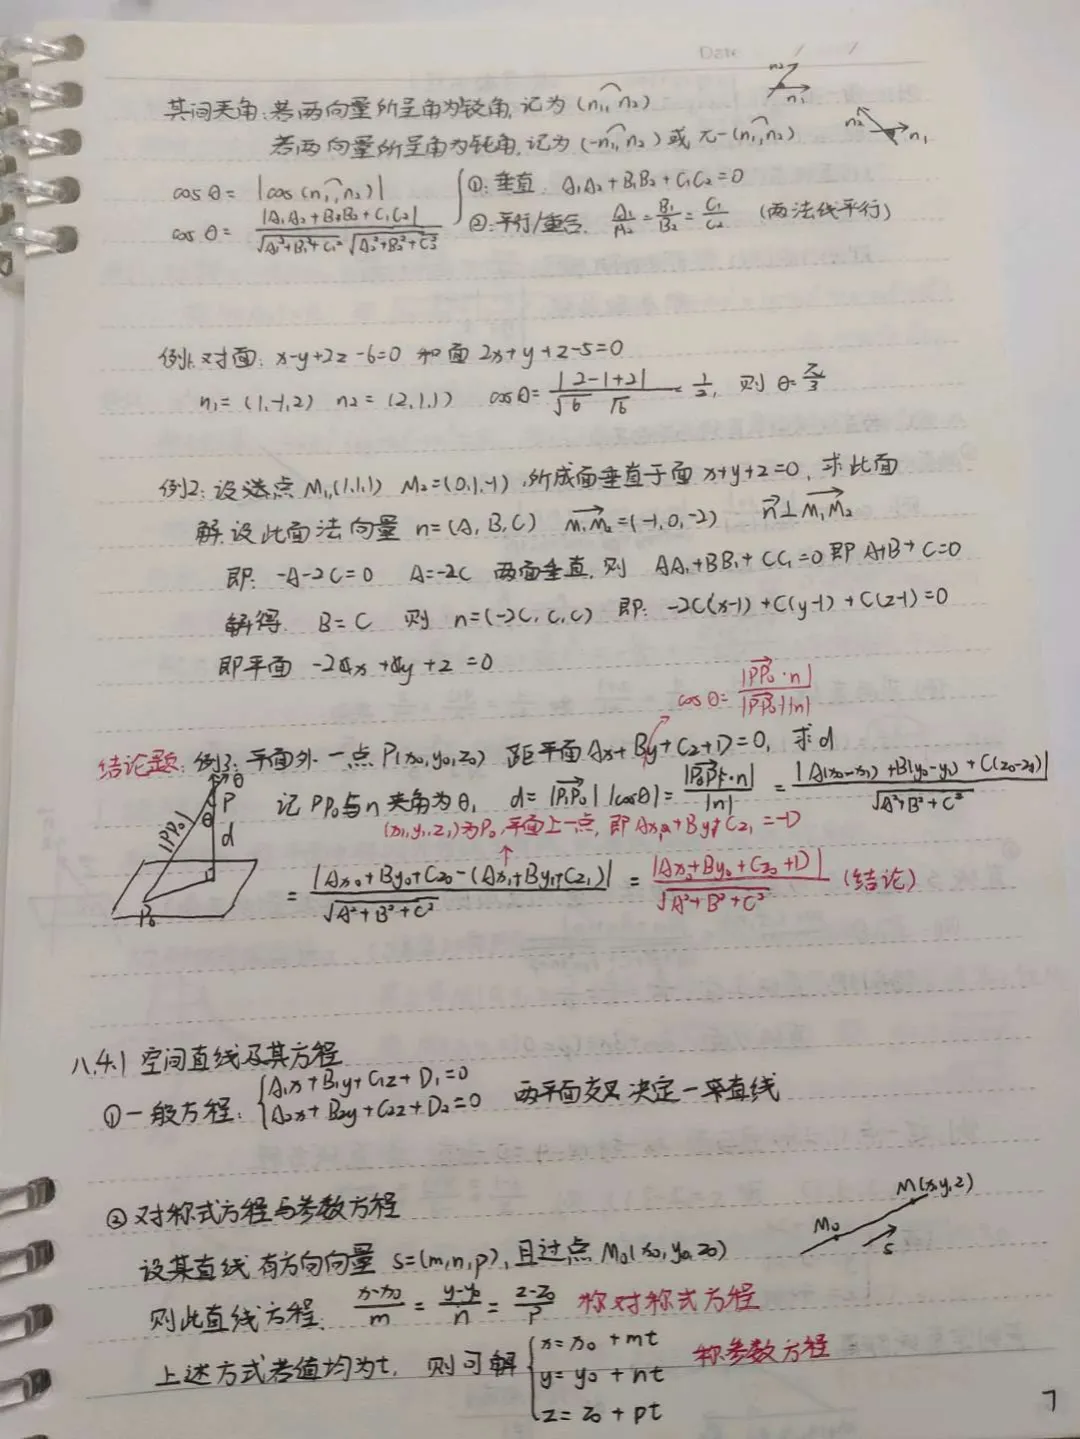 Date / /
其间夹角:若两向量所呈角为锐角,记为(n₁,n₂)
若两向量所呈角为钝角,记为(-n₁,n₂)或π-(n₁,n₂)
n₂ n₁
n₂ n₁
cosθ = |cos(n₁,n₂)| ①:垂直. A₁A₂+B₁B₂+C₁C₂=0
cosθ = |A₁A₂+B₁B₂+C₁C₂| / √A₁²+B₁²+C₁² √A₂²+B₂²+C₂² ②:平行/重合. A₁/A₂ = B₁/B₂ = C₁/C₂ (两法线平行)
例1:对面: x-y+2z-6=0 和面 2x+y+z-5=0
n₁=(1,-1,2) n₂=(2,1,1) cosθ= |2-1+2| / √6 √6 = 1/2, 则θ=π/3
例2:设选点M₁(1,1,1) M₂=(0,1,-1).所成面垂直于面x+y+z=0, 求此面
解:设此面法向量 n=(A,B,C) M₁M₂=(-1,0,-2) n⊥M₁M₂
即: -A-2C=0 A=-2C 两面垂直,则 AA₁+BB₁+CC₁=0即A+B+C=0
解得. B=C 则 n=(-2C,C,C) 即: -2C(x-1)+C(y-1)+C(z-1)=0
即平面 -2x+y+z=0
cosθ= |PP₀·n| / |PP₀||n|
结论题:例3:平面外一点P(x₀,y₀,z₀) 距平面Ax+By+Cz+D=0, 求d
记PP₀与n夹角为θ, d=|P₁P₀||cosθ|= |P₀P·n| / |n| = |A(x₀-x₁)+B(y₀-y₁)+C(z₀-z₁)| / √A²+B²+C²
(x₁,y₁,z₁)为P₀,平面上一点, 即Ax₁+By₁+Cz₁=-D
θ P |PP₀| θ d P₀
= |Ax₀+By₀+Cz₀-(Ax₁+By₁+Cz₁)| / √A²+B²+C² = |Ax₀+By₀+Cz₀+D| / √A²+B²+C² (结论)
八.4.1 空间直线及其方程
①一般方程: { A₁x+B₁y+C₁z+D₁=0
A₂x+B₂y+C₂z+D₂=0 两平面交叉决定一条直线
②对称式方程与参数方程
M(x,y,z)
M₀ s
设某直线有方向向量 s=(m,n,p), 且过点M₀(x₀,y₀,z₀)
则此直线方程. x-x₀/m = y-y₀/n = z-z₀/p 称对称式方程
上述方式若值均为t, 则可解 { x=x₀+mt 称参数方程
y=y₀+nt
z=z₀+pt
7